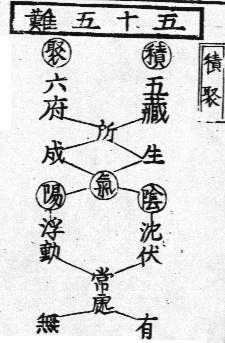 難五十五
積聚
聚 積
六府 五藏
所
成 生
氣
陽 陰
浮動 沈伏
常處
無 有